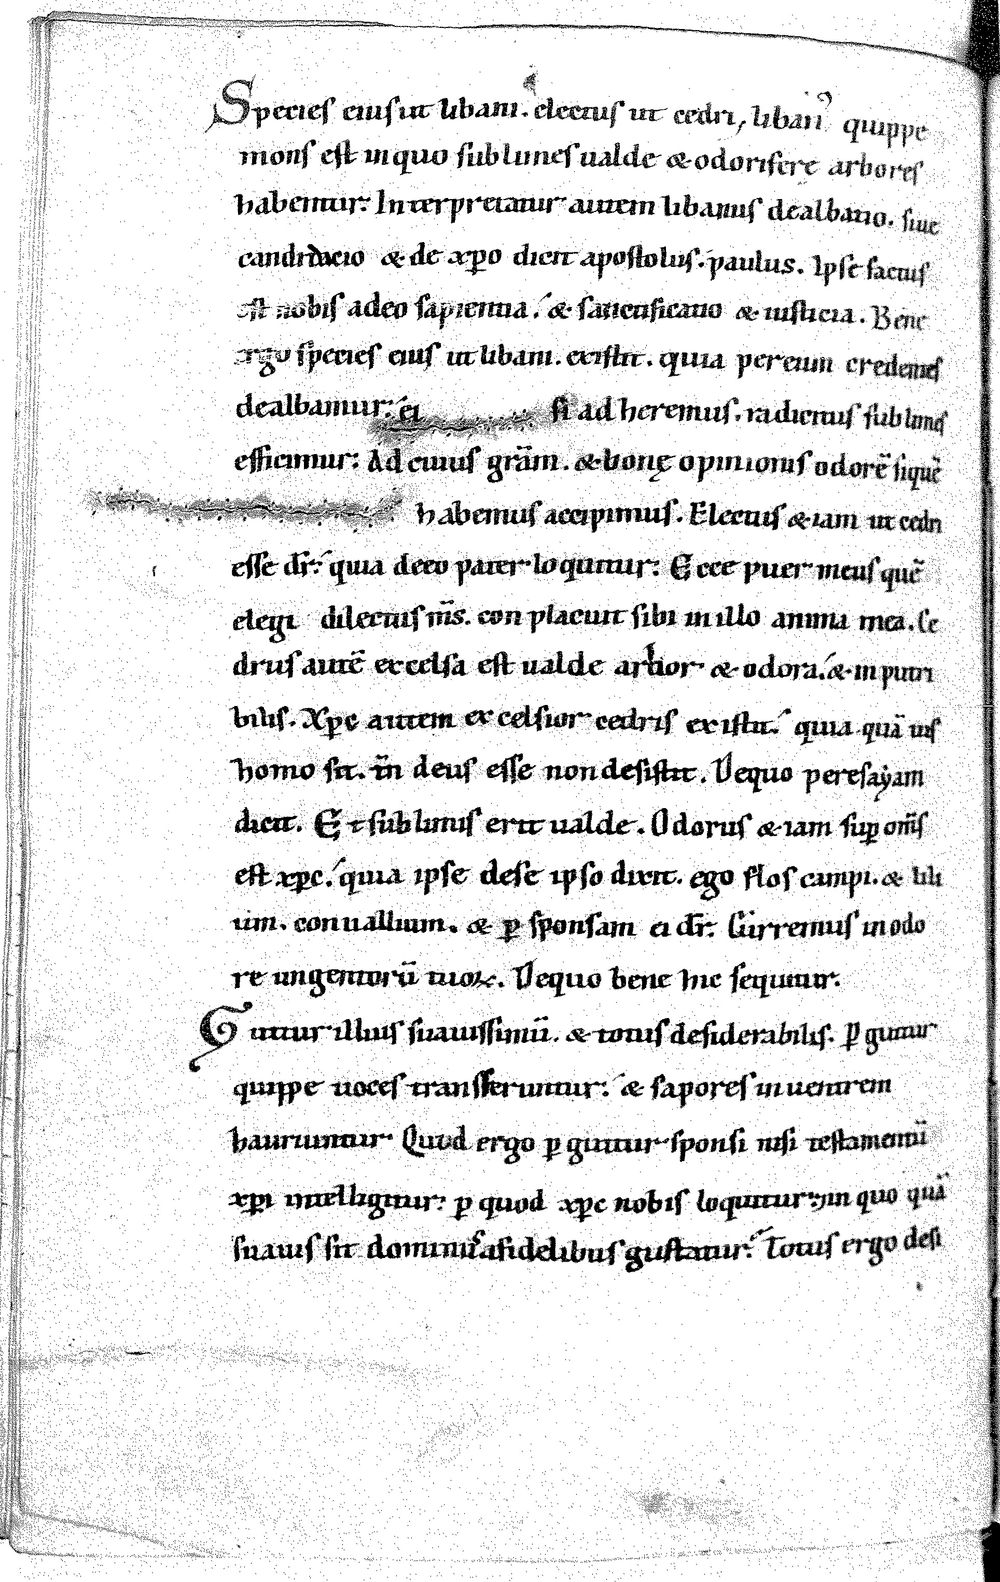 Species eius ut libani. electus ut cedri, libanꝰ quippe
mons est in quo sublimes ualde & odorifere arbores
habentur. Interpretatur autem libanus dealbatio. siue
candidacio & de xp̄o dicit apostolus. paulus. Ipse factus
est nobis a deo sapientia. & sanctificatio & iusticia. Bene
ergo species eius ut libani. existit. quia per eum credentes
dealbamur. ei si adheremus. radicitus sublimes
efficimur. Ad cuius grām. & bonę opinionis odorē siquē
habemus accipimus. Electus & iam ut cedri
esse dr̄. quia de eo pater loquitur. Ecce puer meus quē
elegi dilectus m̄s. conplacuit sibi in illo anima mea. Ce
drus autē excelsa est ualde arbor & odora. & inputri
bilis. Xp̄c autem excelsior cedris existit. quia quāuis
homo sit. tn̄ deus esse non desistit. De quo per esayam
dicit. Et sublimis erit ualde. Odorus & iam sup̄ om̄s
est xp̄c. quia ipse de se ipso dixit. ego flos campi. & lili
um. conuallium. & ꝑ sponsam ei dr̄. Curremus in odo
re ungentorū tuoꝝ. De quo bene hic sequitur.
Guttur illius suauissimū. & totus desiderabilis. ꝑ guttur
quippe uoces transferuntur. & sapores in uentrem
hauriuntur. Quod ergo ꝑ guttur sponsi nisi testamentū
xp̄i intelligitur. ꝑ quod xp̄c nobis loquitur. in quo quā
suauis sit dominus a fidelibus gustatur. Totus ergo desi